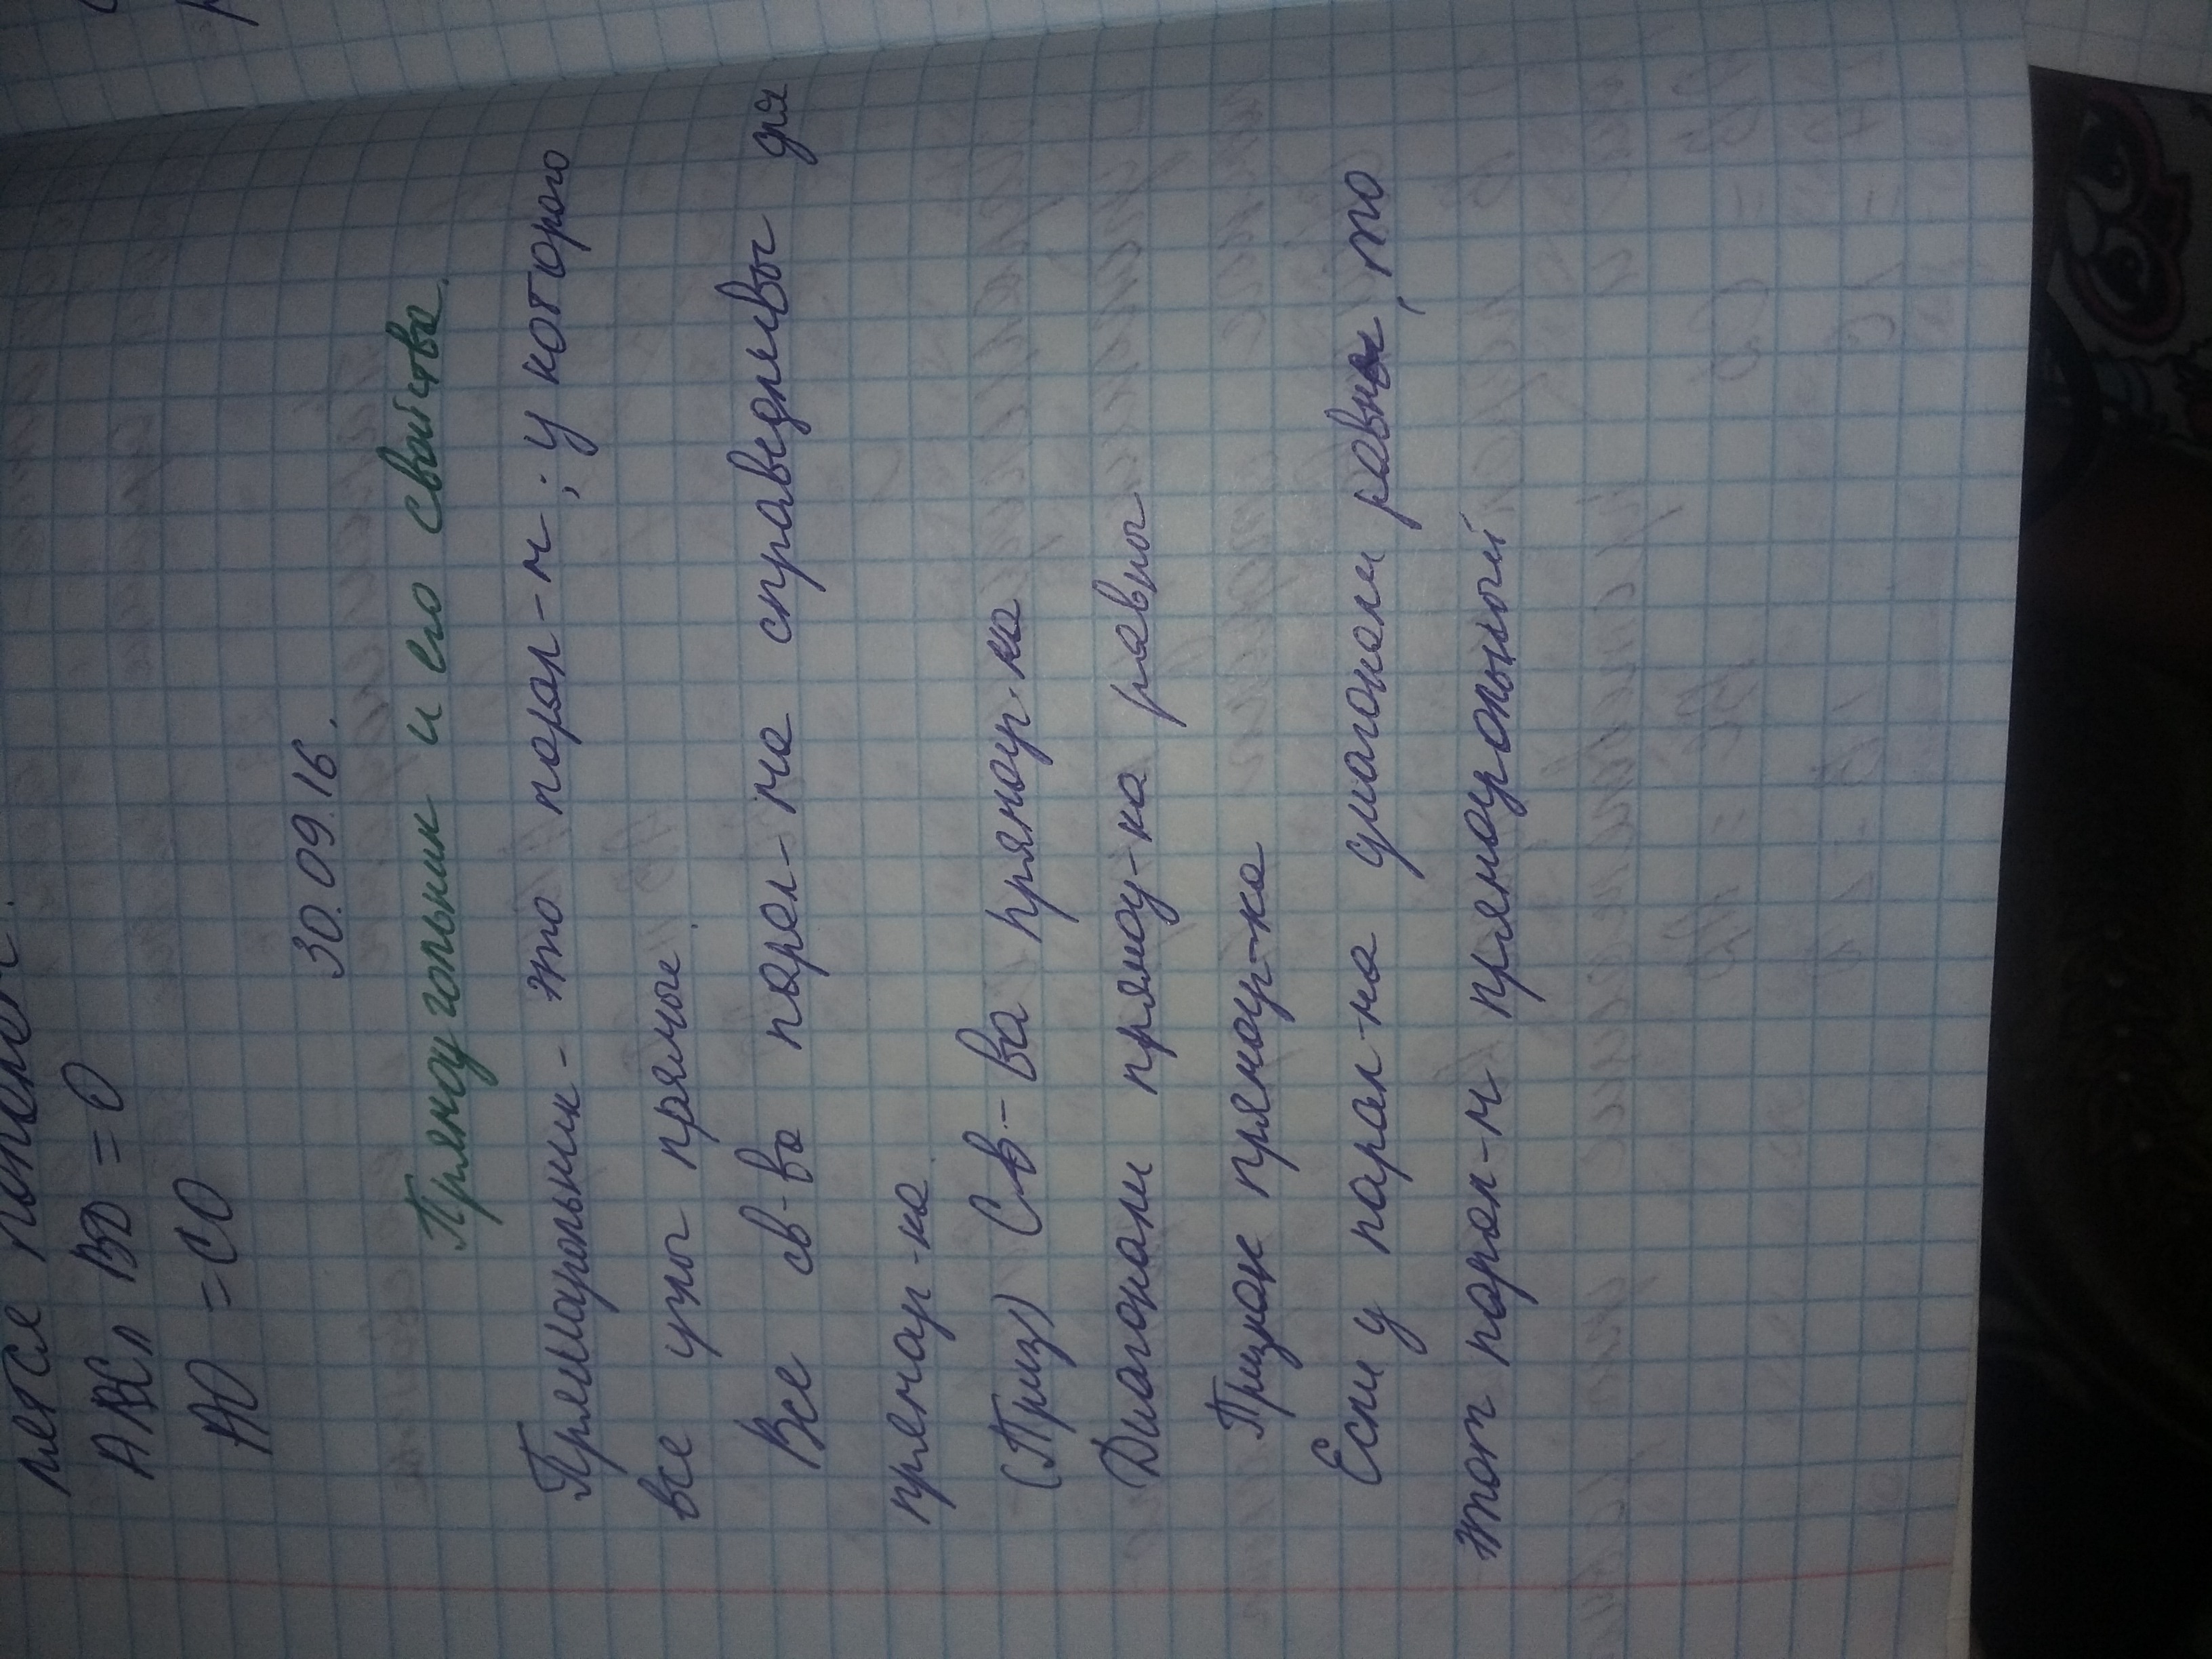 ется попол
ABCD BD = O
AO = CO
30.09.16.
Прямоугольник и его свойства.
Прямоугольник - это парал-м; у которого
все углы прямые.
Все св-ва парал-ма справедливы для
прямоуг-ка.
(Приз) Св-ва прямоуг-ка
Диагонали прямоу-ка равны
Признак прямоуг-ка
Если у парал-ма диагонали равны, то
этот парал-м прямоугольный